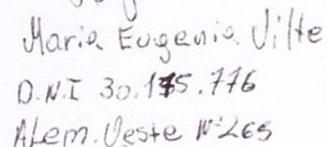 Maria Eugenia Vilte
D.N.I 30.175.776
Alem. Oeste N°265